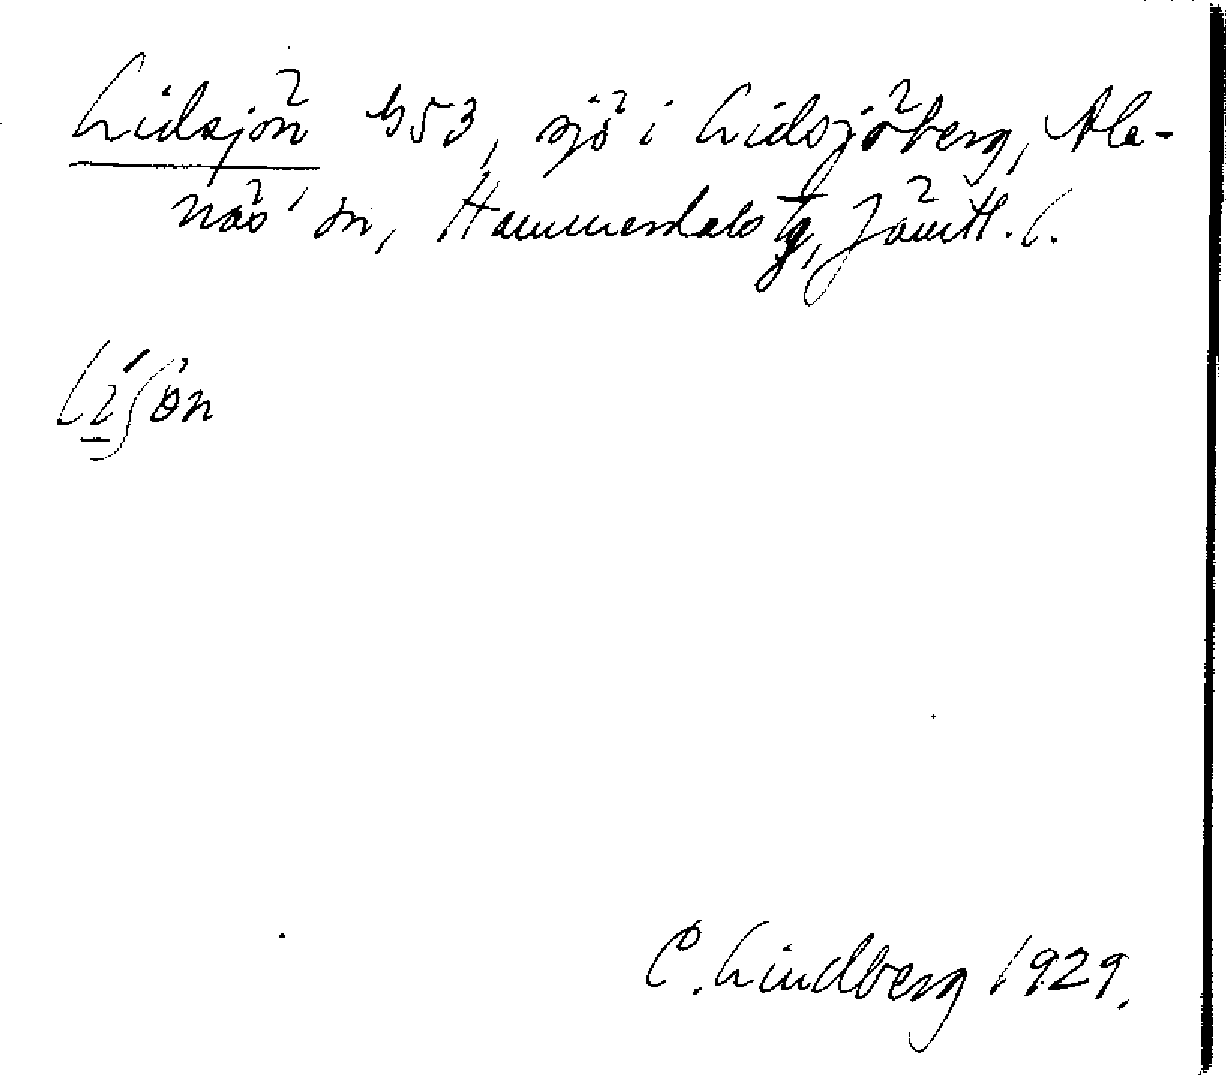 Lidsjön 453, sjö i Lidsjöberg, Ale-
näs' sn, Hammerdals tg, Jämtl. l.
C. Lindberg 1929.